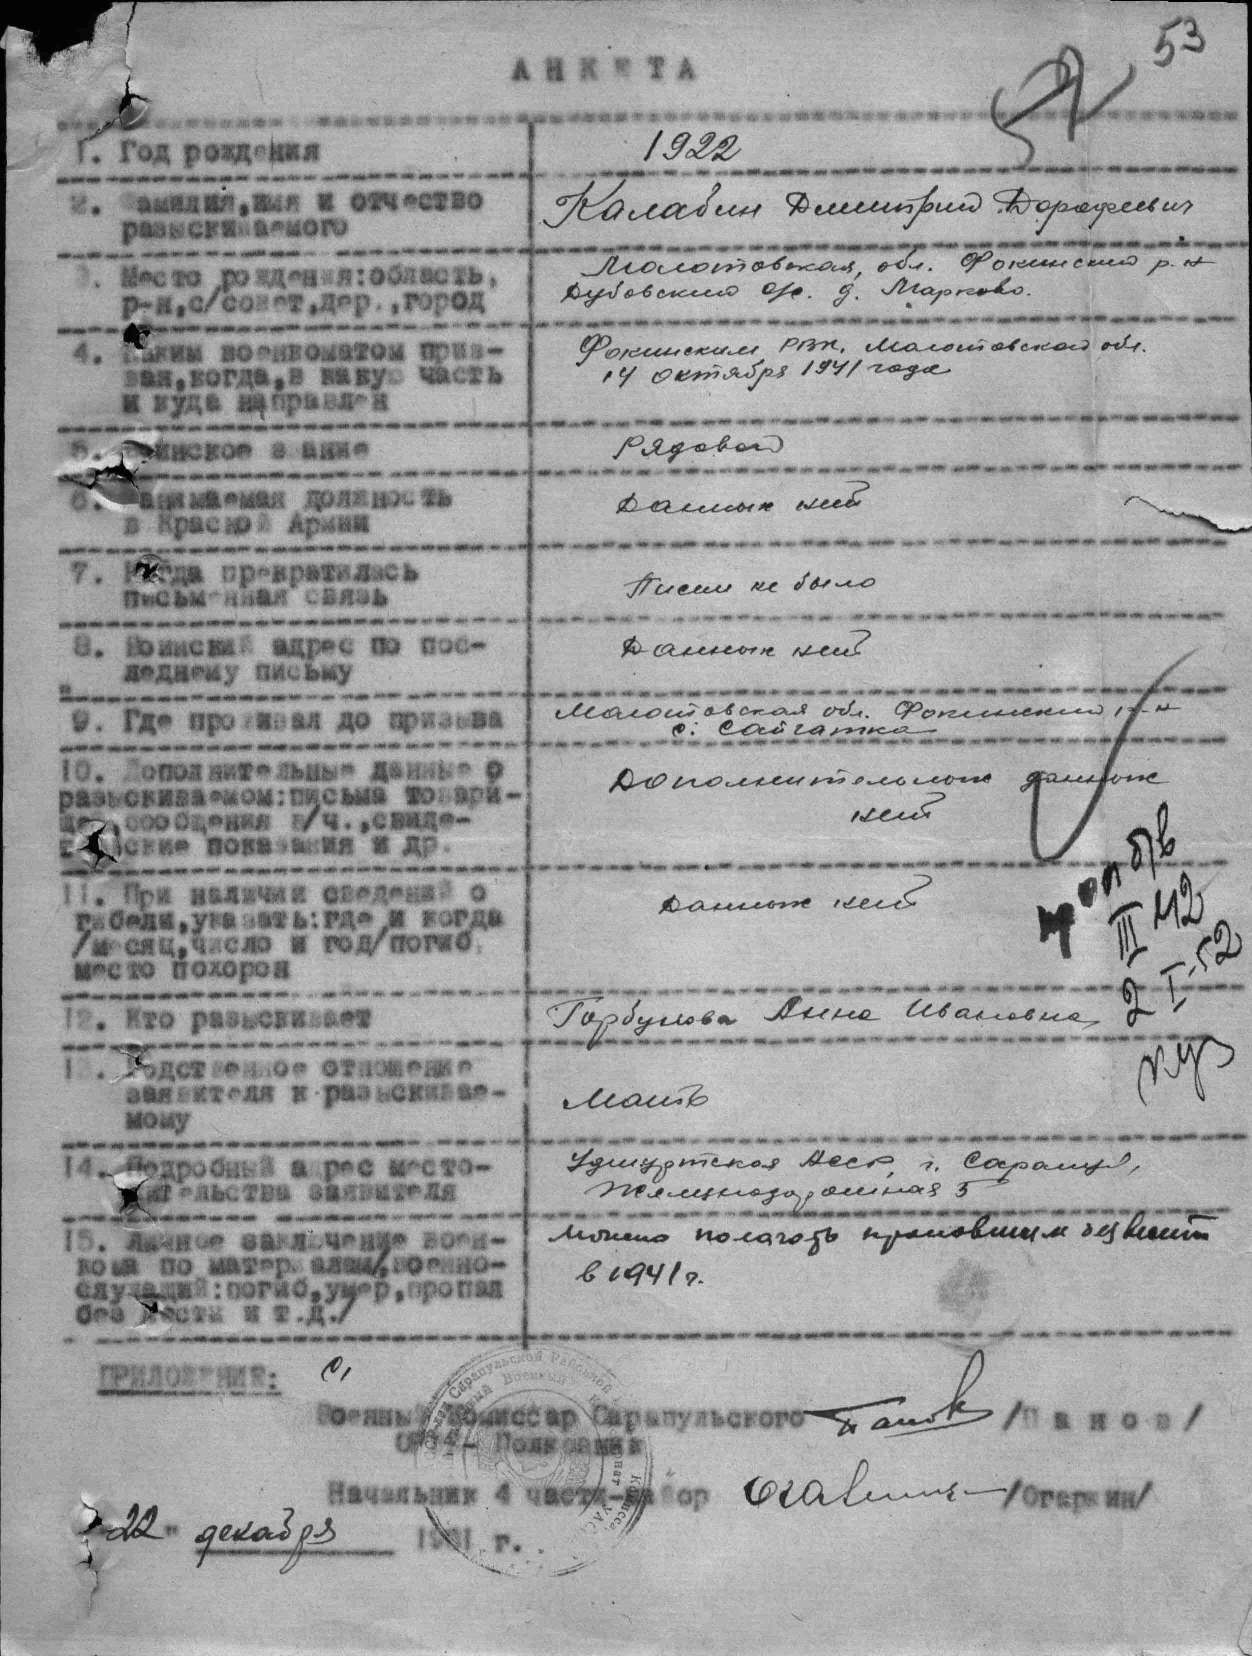 53
52
АНКЕТА
1. Год рождения
1922
2. Фамилия, имя и отчество
разыскиваемого
Калабин Дмитрий Дорофеевич
3. Место рождения: область,
р-н, с/совет, дер., город
Молотовская, обл. Фокинский р-н
Дубовский с/с. д. Марково.
4. Каким военкоматом приз-
ван, когда, в какую часть
и куда направлен
Фокинским РВК, Молотовской обл.
14 октября 1941 года
5. Воинское звание
Рядовой
6. Занимаемая должность
в Красной Армии
Данных нет
7. Когда прекратилась
письменная связь
Писем не было
8. Воинский адрес по пос-
леднему письму
Данных нет
9. Где проживал до призыва
Молотовская обл. Фокинский р-н
с. Сайгатка
10. Дополнительные данные о
разыскиваемом: письма товари-
щей, сообщения в/ч., свиде-
тельские показания и др.
Дополнительных данных
нет
11. При наличии сведений о
гибели, указать: где и когда
/месяц, число и год/ погиб,
место похорон
Данных нет
проп б/в
III 42
2 I-52
12. Кто разыскивает
Горбунова Анна Ивановна
13. Родственное отношение
заявителя к разыскивае-
мому
Мать
14. Подробный адрес место-
жительства заявителя
Удмуртская АССР, г. Сарапул,
Железнодорожная 5
15. Личное заключение воен-
кома по материалам/военно-
служащий: погиб, умер, пропал
без вести и т.д./
Можно полагать пропавшим без вести
в 1941 г.
ПРИЛОЖЕНИЕ:
Военный Комиссар Сарапульского
ОРВК- Полковник
Панов /Панов/
Начальник 4 части-майор
/Огаркин/
"22" декабря 1951 г.